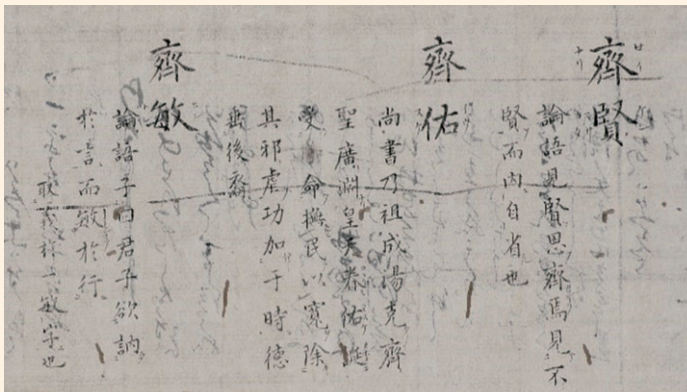 齊賢
論語見賢思齊焉見不
賢而内自省也
齊佑
尚書乃祖成湯克齊
聖廣淵皇天眷佑誕
受命撫民以寛除
其邪虐功加于時德
垂後裔
齊敏
論語子曰君子欲訥
於言而敏於行
取義称二敏字也